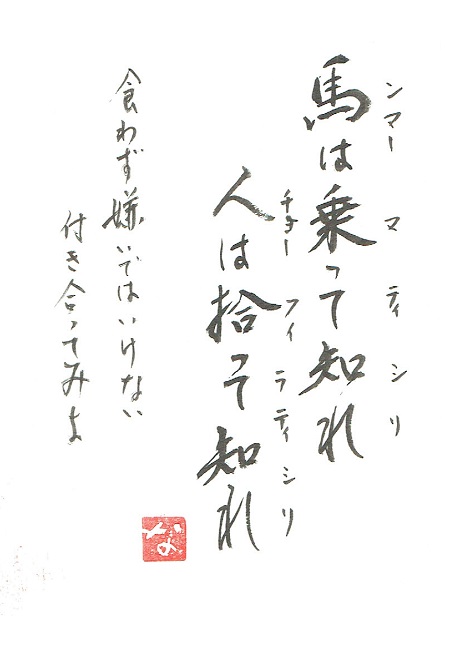 ンマー マティシリ
馬は乗って知れ
チョー フィラティシリ
人は拾って知れ
食わず嫌いではいけない
付き合ってみよ
な